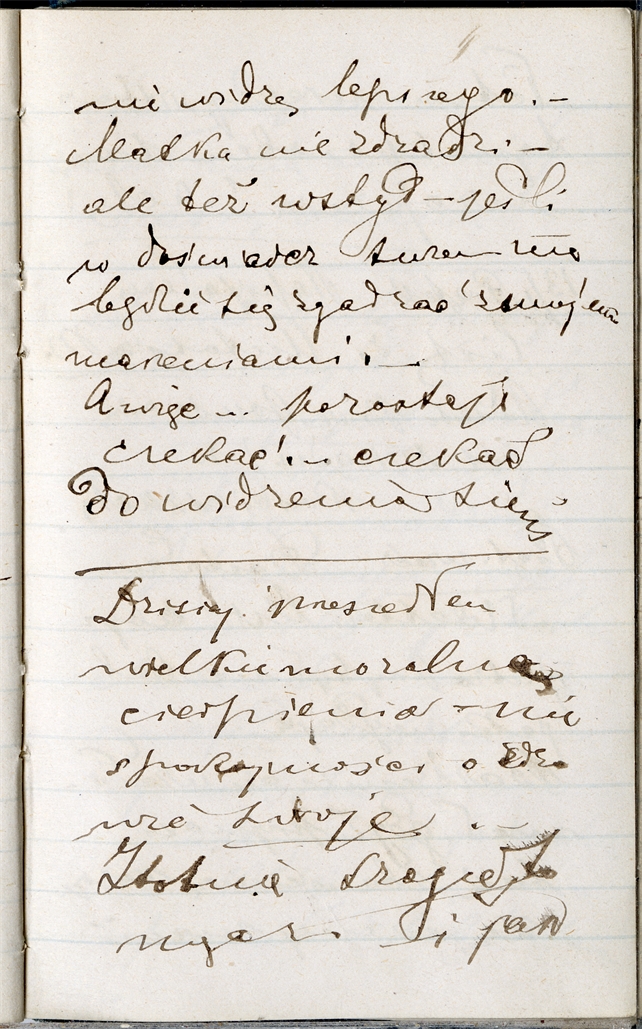 nie widzę lepszego. –
Matka nie zdradzi –
ale też wstyd – jeśli
w doświadcz
będzie się zgadzać z mojemi
marzeniami. –
A więc ... pozostaje
czekać! – czekać
Do widzenia
Dzisiaj przeszedłem
wielkie moralne
cierpienia – nie
spokojności o zdro
wie twoje. –
Istotnie
i pan